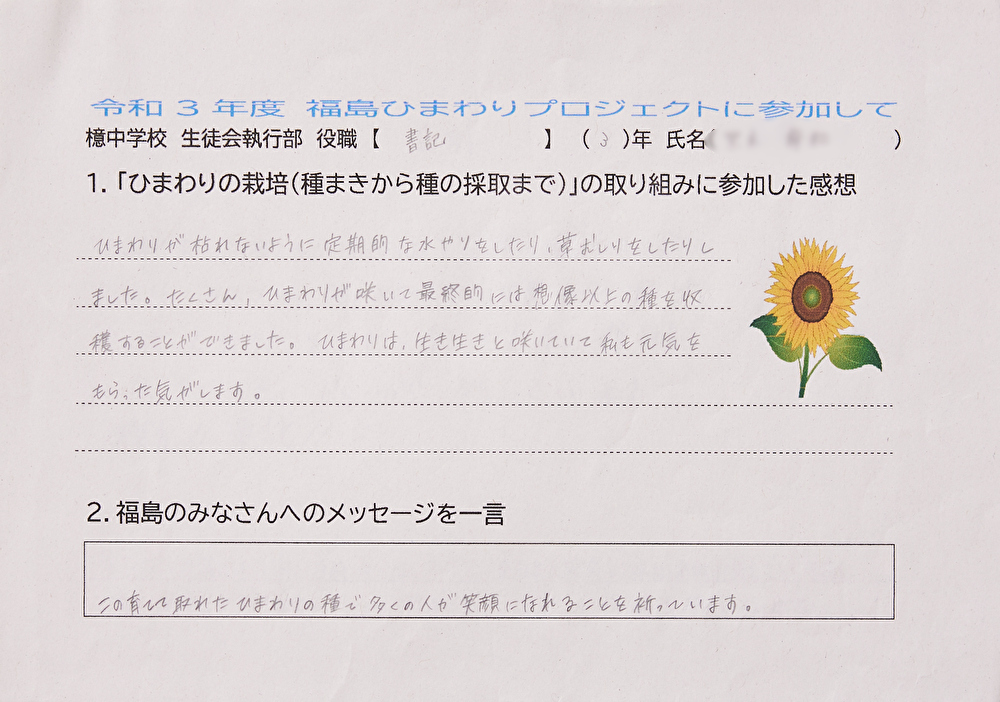 令和3年度 福島ひまわりプロジェクトに参加して
檍中学校 生徒会執行部 役職【 書記 】 (3)年 氏名( )
1.「ひまわりの栽培(種まきから種の採取まで)」の取り組みに参加した感想
ひまわりが枯れないように定期的な水やりをしたり、草むしりをしたりし
ました。たくさん、ひまわりが咲いて最終的には想像以上の種を収
穫することができました。ひまわりは、生き生きと咲いていて私も元気を
もらった気がします。
2.福島のみなさんへのメッセージを一言
この育てて取れたひまわりの種で多くの人が笑顔になれることを祈っています。